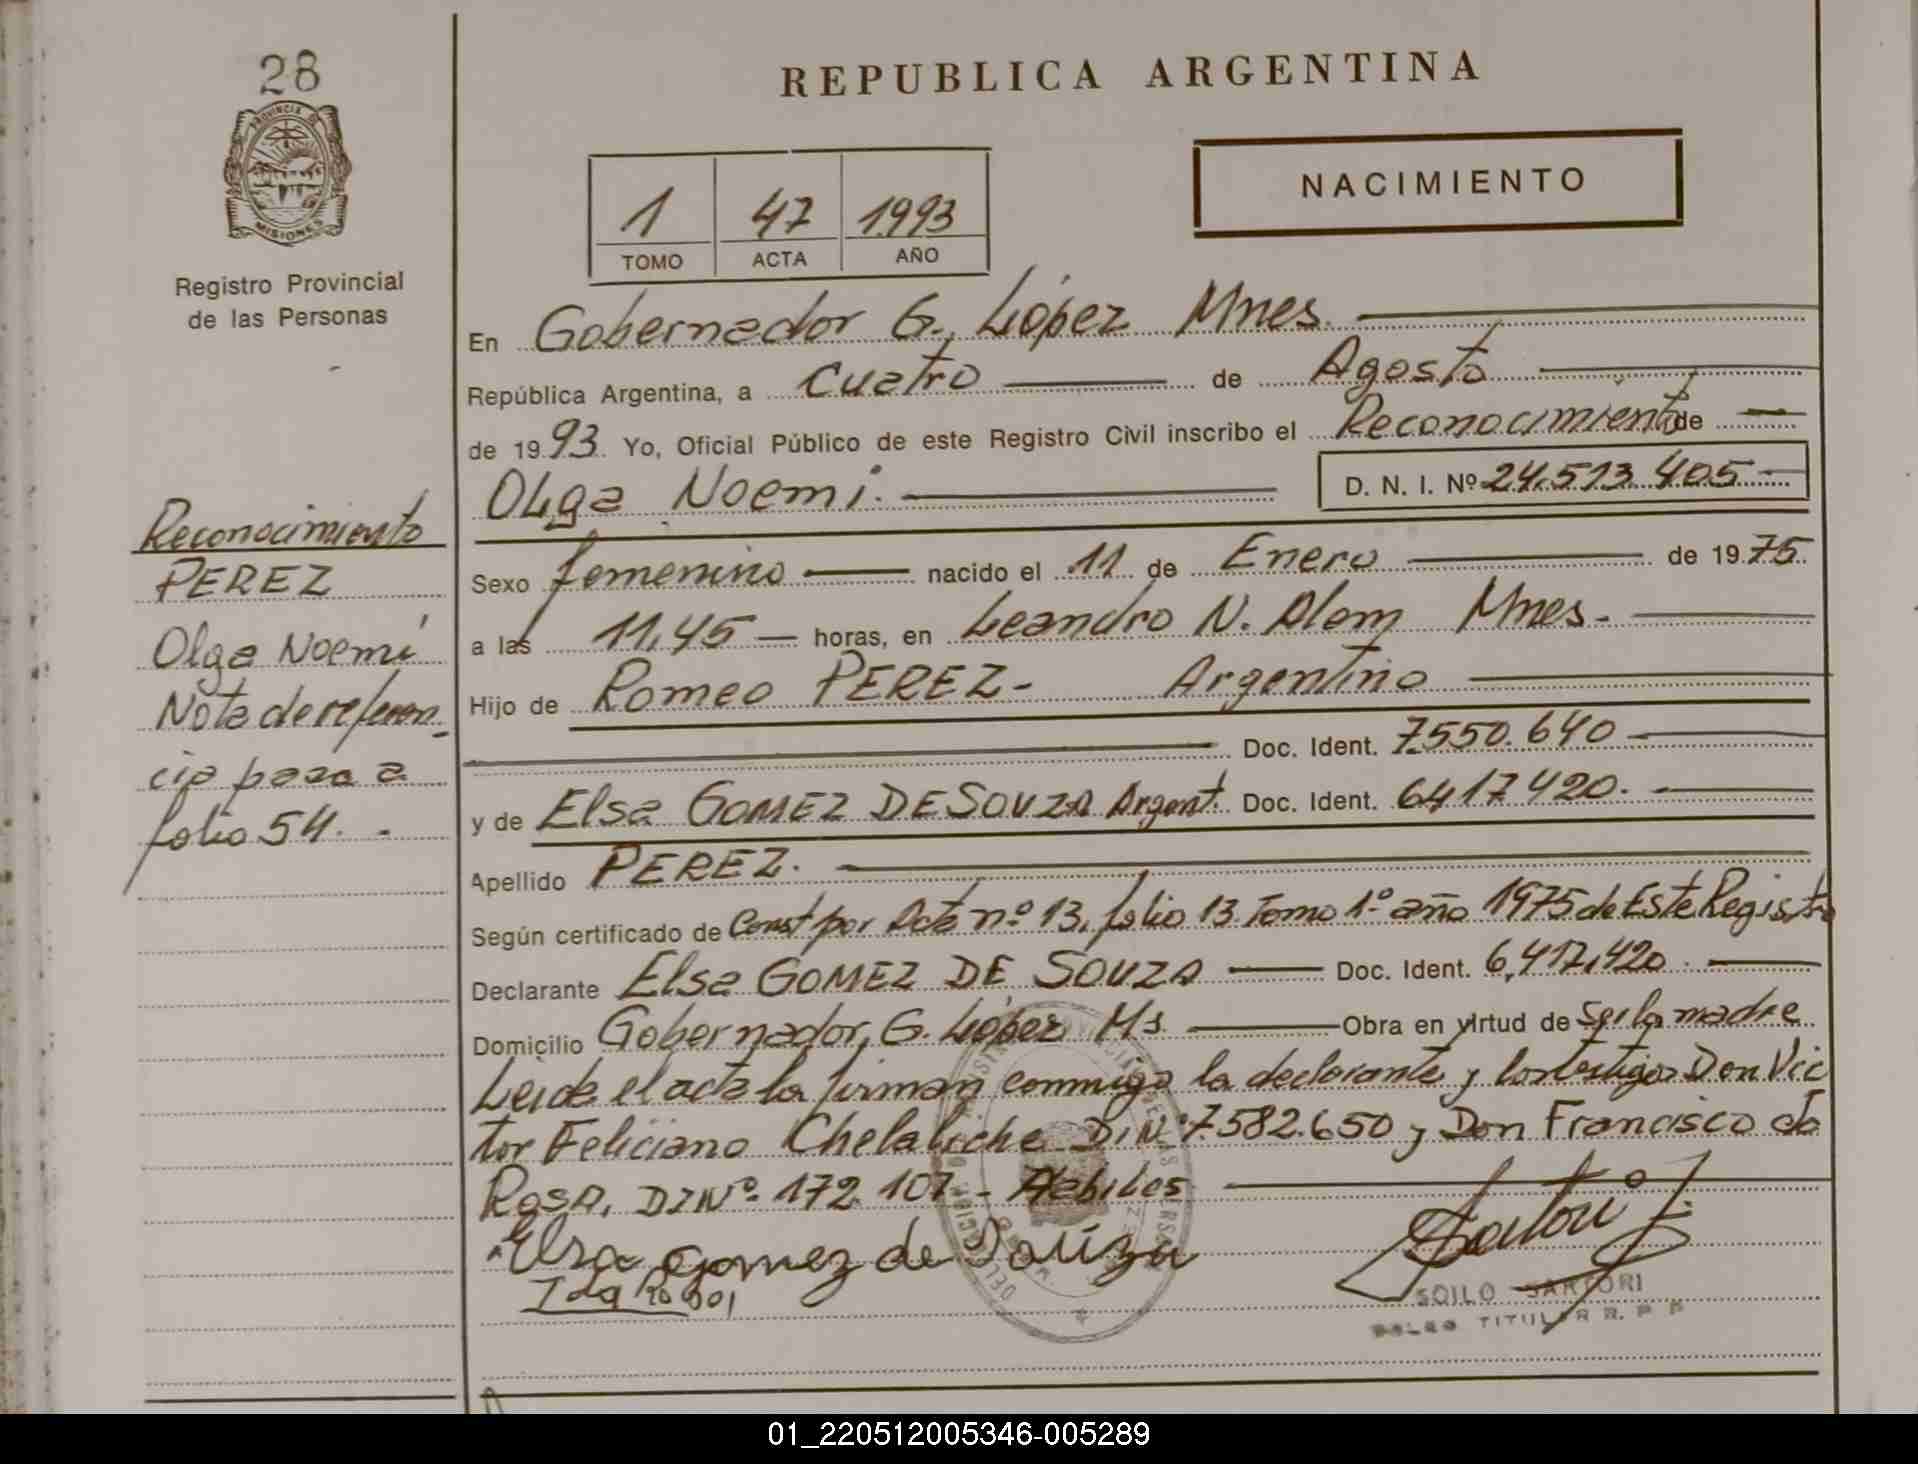 28
PROVINCIA DE
MISIONES
Registro Provincial
de las Personas
Reconocimiento
PEREZ
Olga Noemí
Nota de referen-
cia pasa a
folio 54. -
REPUBLICA ARGENTINA
NACIMIENTO
1 47 1.993
TOMO ACTA AÑO
En Gobernador G. López Mnes.
República Argentina, a cuatro de Agosto
de 1993. Yo, Oficial Público de este Registro Civil inscribo el Reconocimiento de
Olga Noemi. D. N. I. Nº 24.513.405
Sexo femenino nacido el 11 de Enero de 1975.
a las 11,45 horas, en Leandro N. Alem Mnes.
Hijo de Romeo PEREZ - Argentino
Doc. Ident. 7.550.640
y de Elsa GOMEZ DE SOUZA Argent. Doc. Ident. 6417420.
Apellido PEREZ.
Según certificado de Const por Acta nº 13, folio 13 Tomo 1º año 1975 de Este Registro
Declarante Elsa GOMEZ DE SOUZA Doc. Ident. 6,417,420.
Domicilio Gobernador, G. López Ms. Obra en virtud de ser la madre
Leida el acta la firman conmigo la declarante y los testigos Don Vic
tor Feliciano Chelaliche D.I.Nº 7.582.650 y Don Francisco da
Rosa, DINº 172.107 - Hábiles
Elsa gomez de Souza
SOILO SARTORI
TITULAR R. P. P
01_220512005346-005289